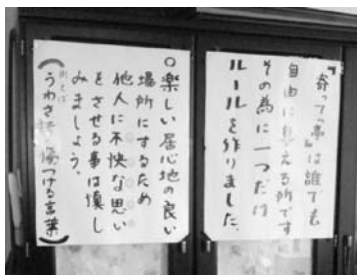 『寄って亭』は誰でも
自由に集える所です
その為に一つだけ
ルールを作りました。
○楽しい居心地の良い
場所にするため
他人に不快な思い
をさせる事は慎し
みましょう。
(うわさ話 傷つける言葉)